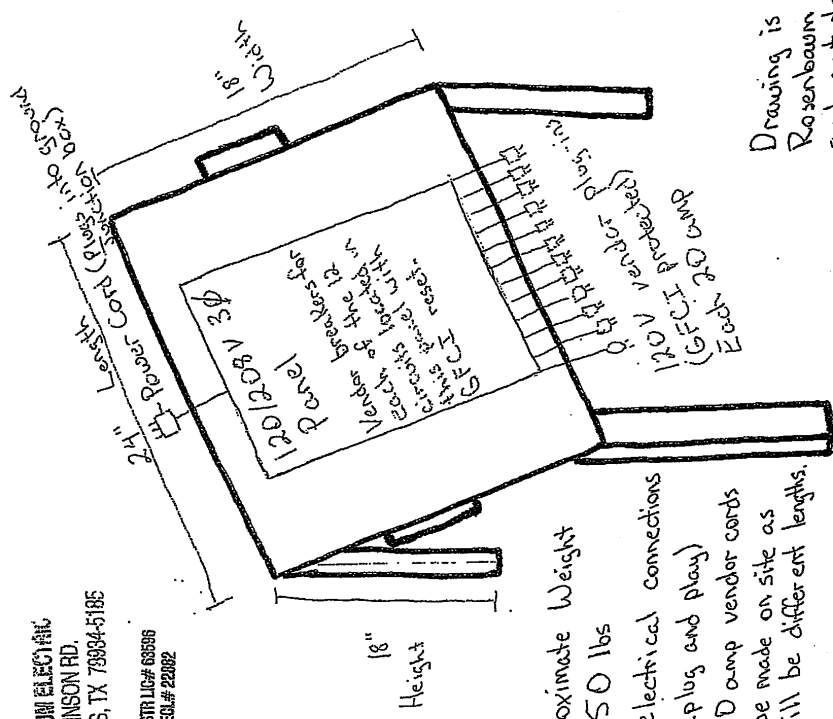 ELECTRIC
NSON RD.
S, TX 79934-5185
STR LIC# 63596
ECL# 22082
24" Length
18" Width
Power Cord (Plugs into ground
junction box)
120/208V 3Ø
Panel
Vendor breakers for
each of the 12
circuits located in
this panel with
GFCI reset.
120V vendor plug-ins
(GFCI Protected)
Each 20 amp
18"
Height
oximate Weight
50 lbs
electrical connections
plug and play)
amp vendor cords
be made on site as
ill be different lengths.
Drawing is
Rosenbaum